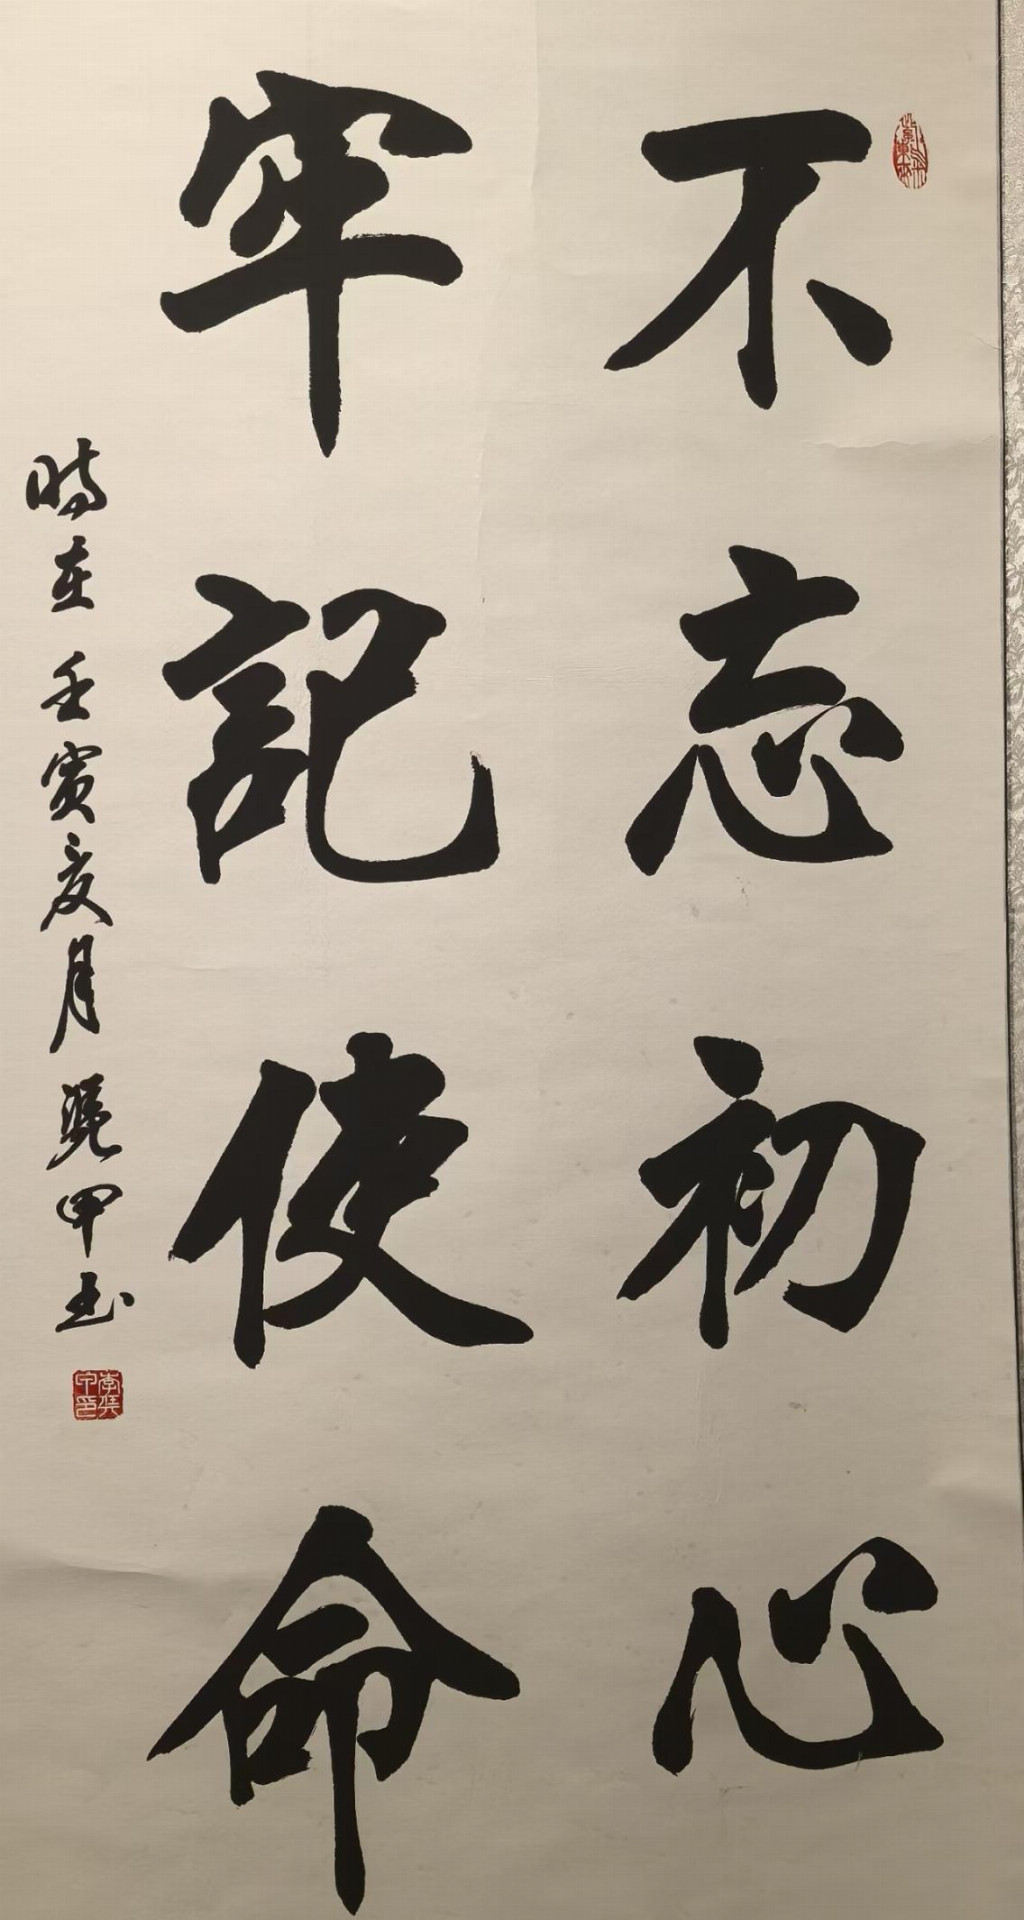 不忘初心
牢記使命
時在壬寅夏月 甲玉